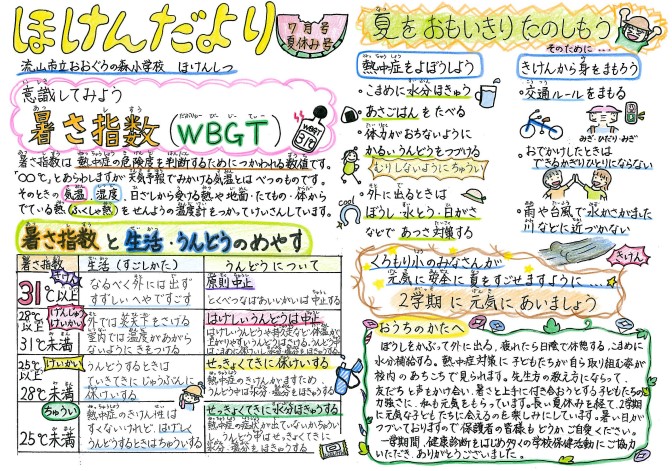 ほけんだより
7月号
夏休み号
流山市立おおぐろの森小学校 ほけんしつ
意識してみよう
暑さ指数(WBGT)
暑さ指数は熱中症の危険度を判断するためにつかわれる数値です。
「○○℃」とあらわしますが天気予報でみかける気温とはべつのものです。
そのときの気温、湿度、日ざしから受ける熱や地面・たてもの・体から
でている熱(ふくしゃ熱)をせんようの温度計をつかってけいさんしています。
暑さ指数と生活・うんどうのめやす
暑さ指数
生活(すごしかた)
うんどうについて
きけん
31℃以上
なるべく外には出ず
すずしいへやですごす
原則中止
とくべつなばあいいがいは中止する
28℃以上
げんじゅうけいかい
31℃未満
外では炎天下をさける
室内では温度があがら
ないようにきをつける
はげしいうんどうは中止
25℃以上
けいかい
28℃未満
うんどうするときは
ていきてきにじゅうぶんに
休けいする
せっきょくてきに休けいする
熱中症のきけんがますため、
ちゅうい
25℃未満
熱中症のきけん性は
すくないけれど、はげしく
うんどうするときはちゅういする
せっきょくてきに水分ほきゅうする
夏をおもいきりたのしもう
そのために…
熱中症をよぼうしよう
・こまめに水分ほきゅう
・あさごはんをたべる
・体力がおちないように
かるいうんどうをつづける
むりしないようにちゅうい
・外に出るときは
ぼうし・水とう・日がさ
などであつさ対策する
cool
きけんから身をまもろう
・交通ルールをまもる
みぎ・ひだり・みぎ
・おでかけしたときは
できるかぎりひとりにならない
・雨や台風で水かさがました
川などに近づかない
きけん
くろもり小のみなさんが
元気に安全に夏をすごせますように……
2学期に元気にあいましょう
おうちのかたへ
ぼうしをかぶって外に出る、疲れたら日陰で休憩する、こまめに
水分補給する。熱中症対策に子どもたちが自ら取り組む姿が
校内のあちこちで見られます。先生方の教え方にならって、
友だちと声をかけ合い、暑さと上手に付き合おうとする子どもたちの
力強さに、私も元気をもらっています。長い夏休みを経て、2学期
に元気な子どもたちに会えるのを楽しみにしています。暑い日が
つづいておりますので保護者の皆様もどうかご自愛ください。
一学期間、健康診断をはじめ多くの学校保健活動にご協力
いただき、ありがとうございました。